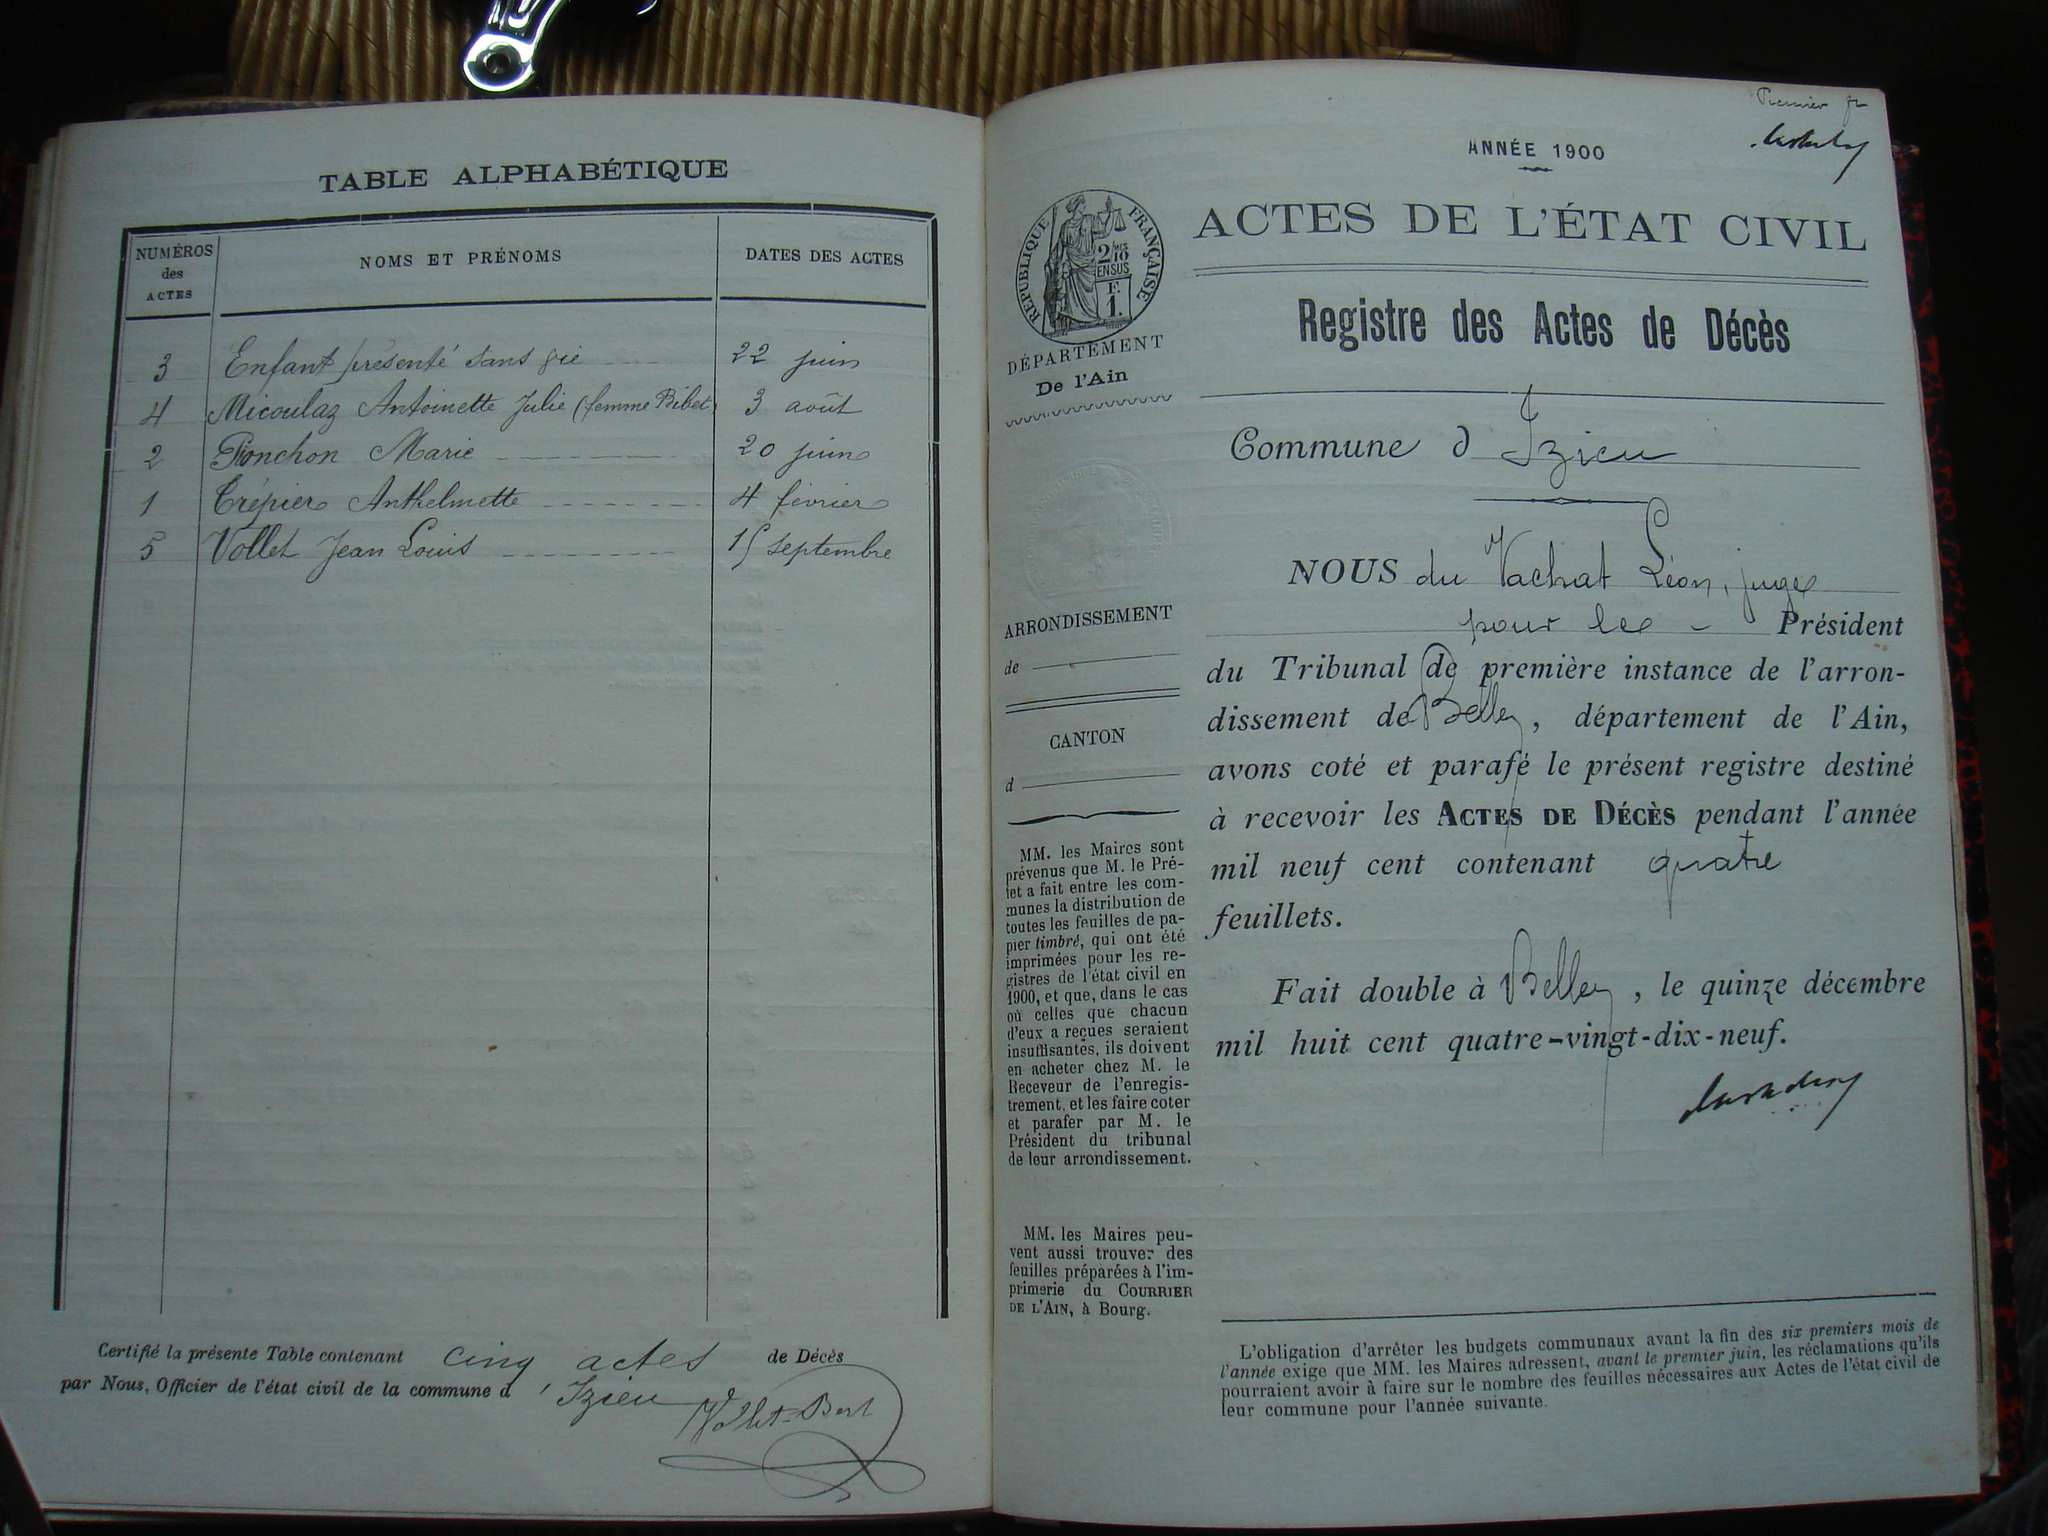 TABLE ALPHABÉTIQUE
NUMÉROS des ACTES
NOMS ET PRÉNOMS
DATES DES ACTES
3 Enfant présenté sans vie 22 juin
4 Micoulaz Antoinette Julie (femme Bibet) 3 août
2 Ronchon Marie 20 juin
1 Trépier Anthelmette 4 février
5 Vollet Jean Louis 15 septembre
Certifié la présente Table contenant cinq actes de Décès
par Nous, Officier de l'état civil de la commune d'Izieu
Premier
ANNÉE 1900
RÉPUBLIQUE FRANÇAISE
2/10 EN SUS
F. 1.
ACTES DE L'ÉTAT CIVIL
Registre des Actes de Décès
DÉPARTEMENT
De l'Ain
Commune d Izieu
NOUS du Vachat Léon, juge
pour le Président
du Tribunal de première instance de l'arron-
dissement de Belley, département de l'Ain,
avons coté et parafé le présent registre destiné
à recevoir les ACTES DE DÉCÈS pendant l'année
mil neuf cent contenant quatre
feuillets.
Fait double à Belley, le quinze décembre
mil huit cent quatre-vingt-dix-neuf.
ARRONDISSEMENT
de
CANTON
d
MM. les Maires sont
prévenus que M. le Pré-
fet a fait entre les com-
munes la distribution de
toutes les feuilles de pa-
pier timbré, qui ont été
imprimées pour les re-
gistres de l'état civil en
1900, et que, dans le cas
où celles que chacun
d'eux a reçues seraient
insuffisantes, ils doivent
en acheter chez M. le
Receveur de l'enregis-
trement, et les faire coter
et parafer par M. le
Président du tribunal
de leur arrondissement.
MM. les Maires peu-
vent aussi trouver des
feuilles préparées à l'im-
primerie du COURRIER
DE L'AIN, à Bourg.
L'obligation d'arrêter les budgets communaux avant la fin des six premiers mois de
l'année exige que MM. les Maires adressent, avant le premier juin, les réclamations qu'ils
pourraient avoir à faire sur le nombre des feuilles nécessaires aux Actes de l'état civil de
leur commune pour l'année suivante.